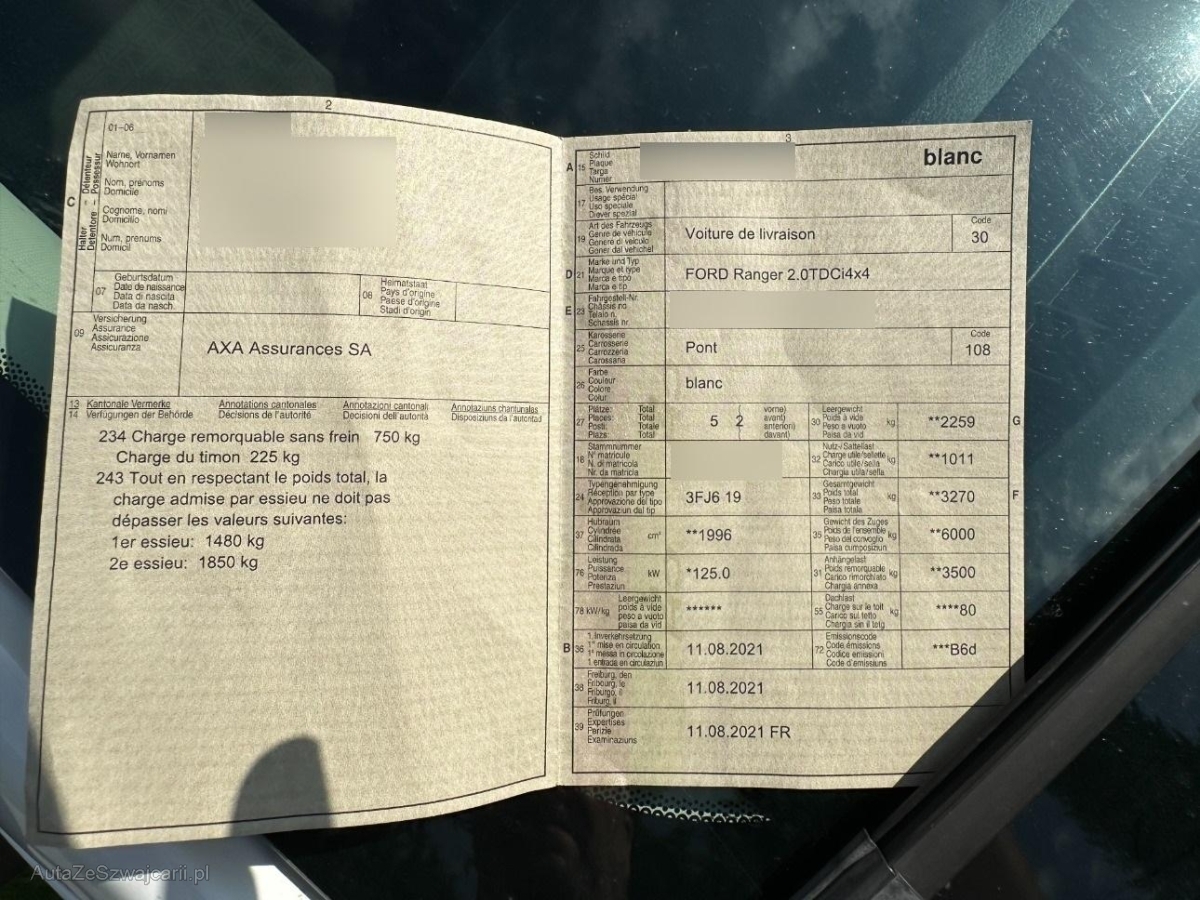 2
01-06
C
Halter - Détenteur
Detentore - Possessur
Name, Vornamen
Wohnort
Nom, prénoms
Domicile
Cognome, nomi
Domicilio
Num, prenums
Domicil
07
Geburtsdatum
Date de naissance
Data di nascita
Data da nasch.
08
Heimatstaat
Pays d'origine
Paese d'origine
Stadi d'origin
09
Versicherung
Assurance
Assicurazione
Assicuranza
AXA Assurances SA
13 Kantonale Vermerke Annotations cantonales Annotazioni cantonali Annotaziuns chantunalas
14 Verfügungen der Behörde Décisions de l'autorité Decisioni dell'autorità Disposiziuns da l'autoritad
234 Charge remorquable sans frein 750 kg
Charge du timon 225 kg
243 Tout en respectant le poids total, la
charge admise par essieu ne doit pas
dépasser les valeurs suivantes:
1er essieu: 1480 kg
2e essieu: 1850 kg
3
A 15
Schild
Plaque
Targa
Numer
blanc
17
Bes. Verwendung
Usage spécial
Uso speciale
Diever spezial
19
Art des Fahrzeugs
Genre de véhicule
Genere di veicolo
Gener dal vehichel
Voiture de livraison
Code
30
D 21
Marke und Typ
Marque et type
Marca e tipo
Marca e tip
FORD Ranger 2.0TDCi4x4
E 23
Fahrgestell-Nr.
Châssis no
Telaio n.
Schassis nr.
25
Karosserie
Carrosserie
Carrozzeria
Carossaria
Pont
Code
108
26
Farbe
Couleur
Colore
Colur
blanc
27
Plätze: Total
Places: Total
Posti: Totale
Plazs: Total
5 2
vorne)
avant)
anteriori)
davant)
30
Leergewicht
Poids à vide
Peso a vuoto
Paisa da vid
kg
**2259
G
18
Stammnummer
N° matricule
N. di matricola
Nr. da matricla
32
Nutz-/Sattellast
Charge utile/sellette
Carico utile/sella
Chargia utila/sella
kg
**1011
24
Typengenehmigung
Réception par type
Approvazione del tipo
Approvaziun dal tip
3FJ6 19
33
Gesamtgewicht
Poids total
Peso totale
Paisa totala
kg
**3270
F
37
Hubraum
Cylindrée
Cilindrata
Cilindrada
cm³
**1996
35
Gewicht des Zuges
Poids de l'ensemble
Peso del convoglio
Paisa cumposiziun
kg
**6000
76
Leistung
Puissance
Potenza
Prestaziun
kW
*125.0
31
Anhängelast
Poids remorquable
Carico rimorchiato
Chargia annexa
kg
**3500
78 kW/kg
Leergewicht
poids à vide
peso a vuoto
paisa da vid
******
55
Dachlast
Charge sur le toit
Carico sul tetto
Chargia sin il tetg
kg
****80
B 36
1. Inverkehrsetzung
1re mise en circulation
1a messa in circolazione
1. entrada en circulaziun
11.08.2021
72
Emissionscode
Code émissions
Codice emissioni
Code d'emissiuns
***B6d
38
Freiburg, den
Fribourg, le
Friburgo, il
Friburg, il
11.08.2021
39
Prüfungen
Expertises
Perizie
Examinaziuns
11.08.2021 FR
AutaZeSzwajcarii.pl